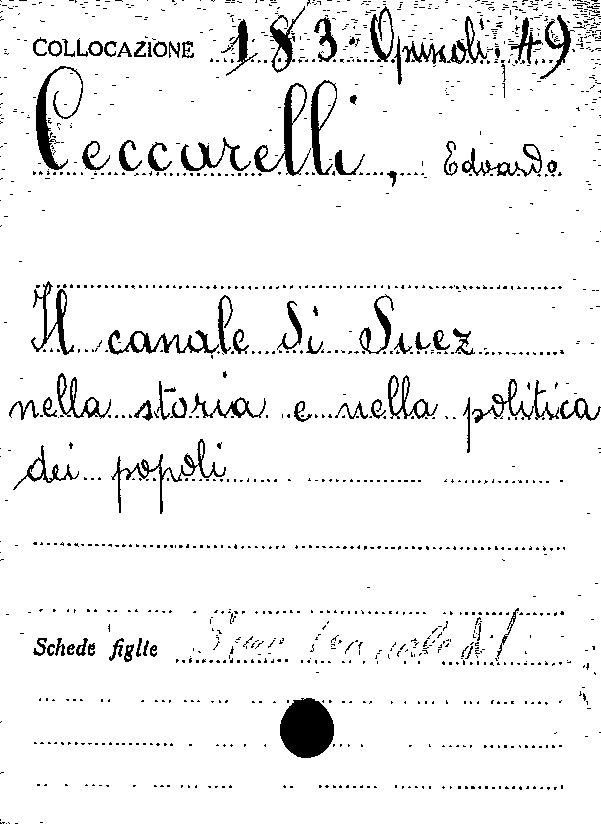 COLLOCAZIONE 183. Opuscoli. 49
Ceccarelli, Edoardo
Il canale di Suez
nella storia e nella politica
dei popoli
Schede figlie Suez (canale di)